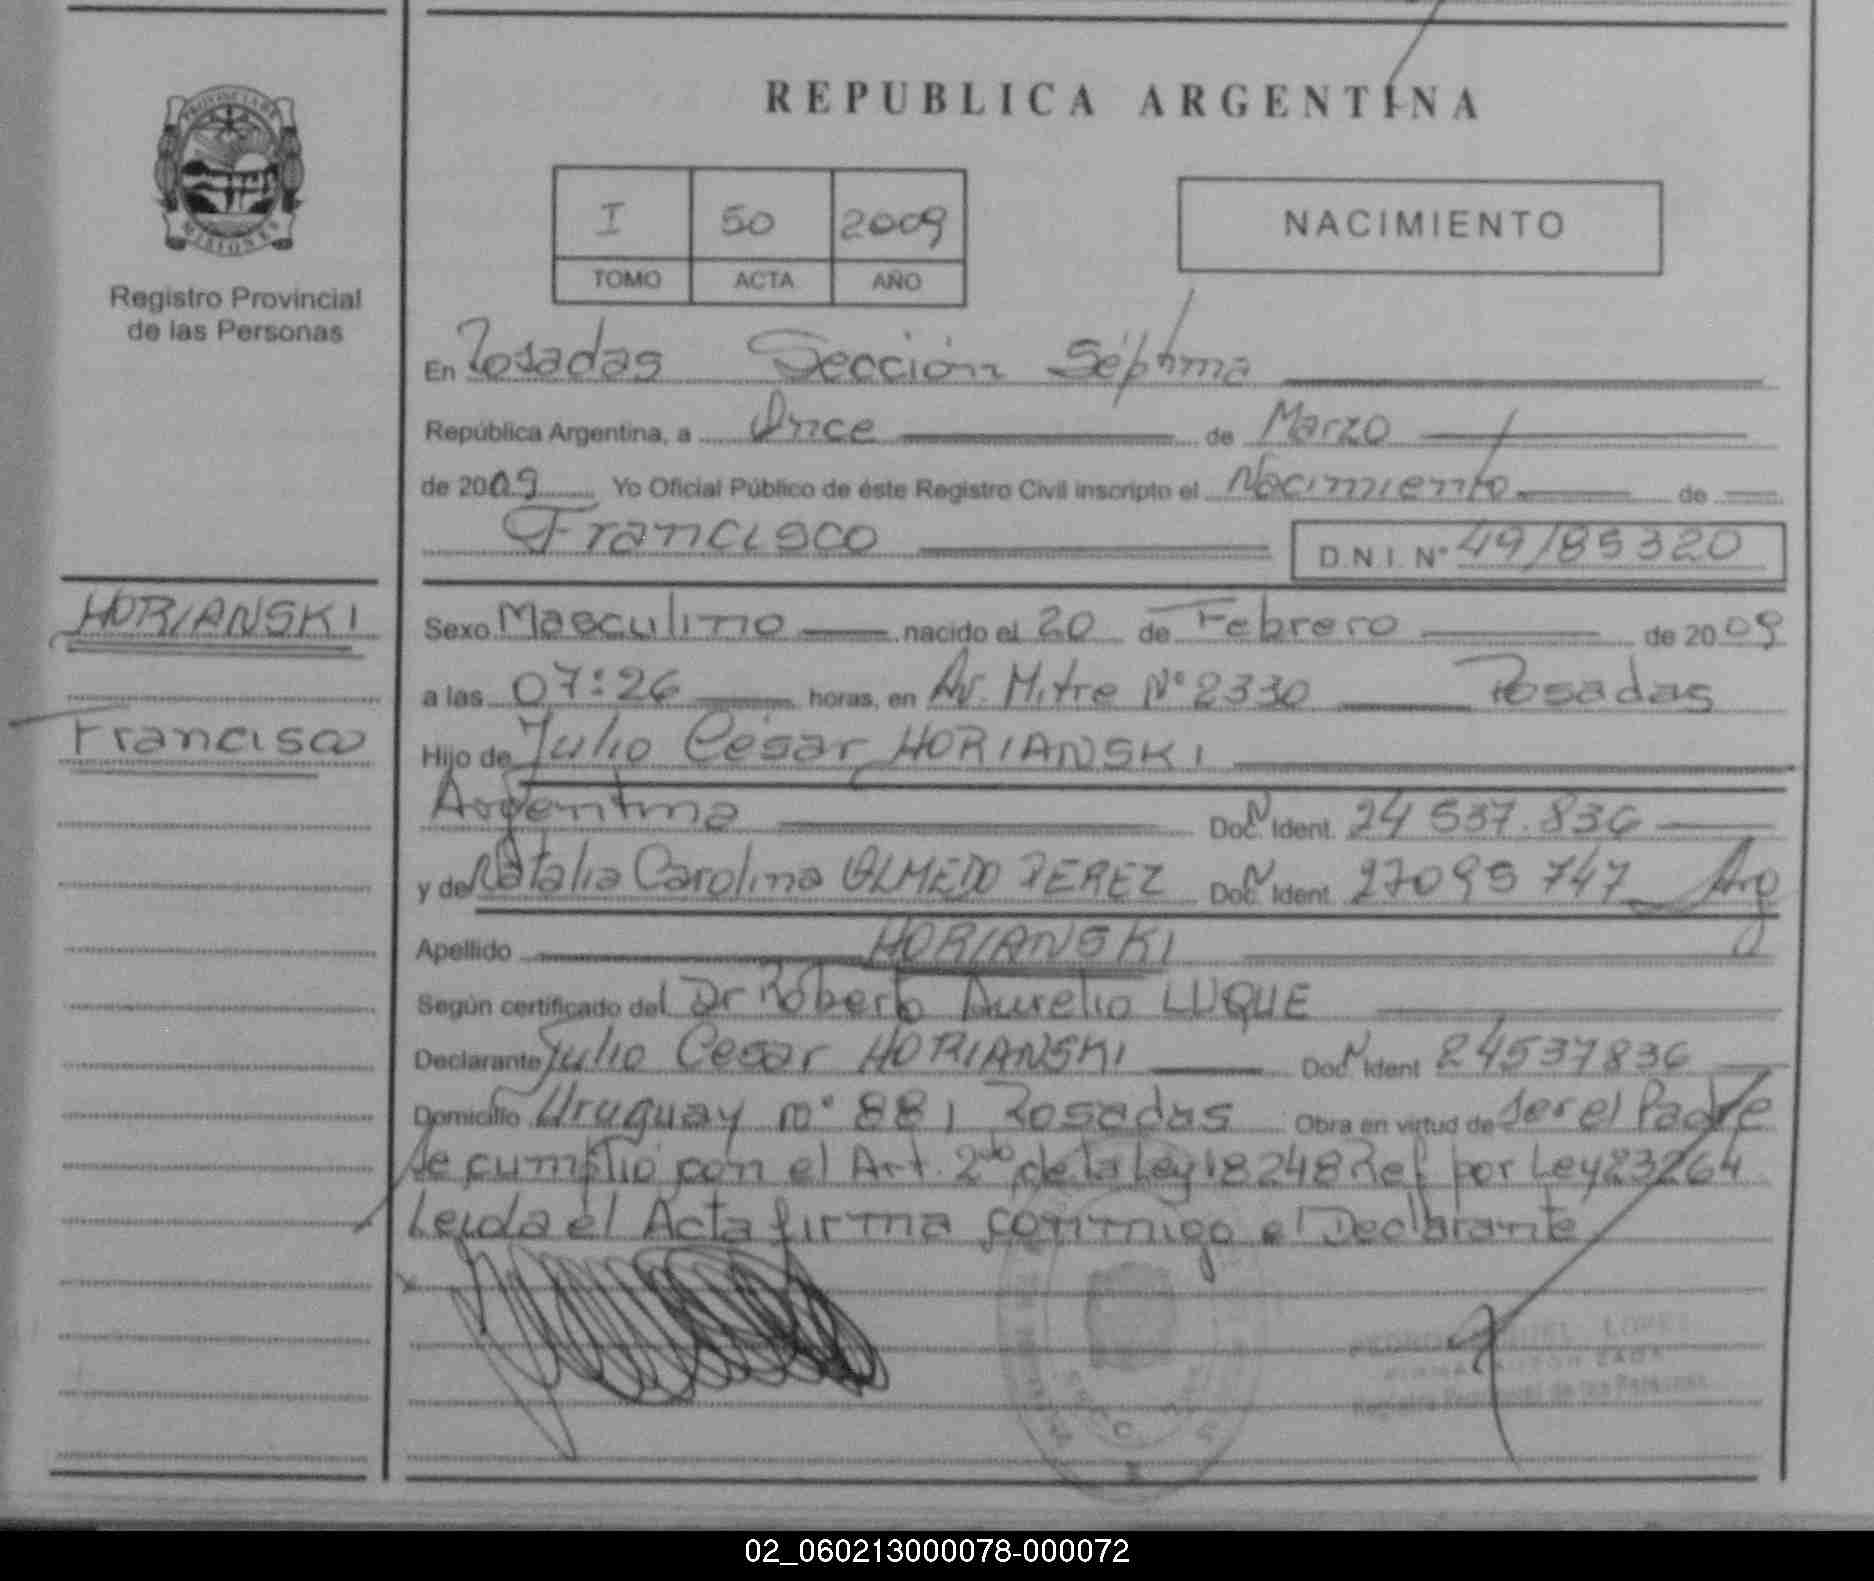 PROVINCIA DE
MISIONES
Registro Provincial
de las Personas
HORIANSKI
Francisco
REPUBLICA ARGENTINA
I 50 2009
TOMO ACTA AÑO
NACIMIENTO
En Posadas Sección Séptima
República Argentina, a Once de Marzo
de 2009 Yo Oficial Público de éste Registro Civil inscripto el Nacimiento de
Francisco D.N.I. N° 49/85320
Sexo Masculino nacido el 20 de Febrero de 2009
a las 07:26 horas, en Av. Mitre N° 2330 Posadas
Hijo de Julio César HORIANSKI
Argentina Doc. N Ident. 24 537.836
y de Natalia Carolina OLMEDO PEREZ Doc. N Ident. 27095 747 Arg
Apellido HORIANSKI
Según certificado del Dr Roberto Aurelio LUQUE
Declarante Julio Cesar HORIANSKI Doc. N Ident 24537836
Domicilio Uruguay n° 881 Posadas Obra en virtud de ser el Padre
Se cumplió con el Art. 2do de la Ley 18248 Ref por Ley 23264
Leida el Acta firma conmigo el Declarante
x
LOPEZ
Registro Provincial de las Personas
02_060213000078-000072